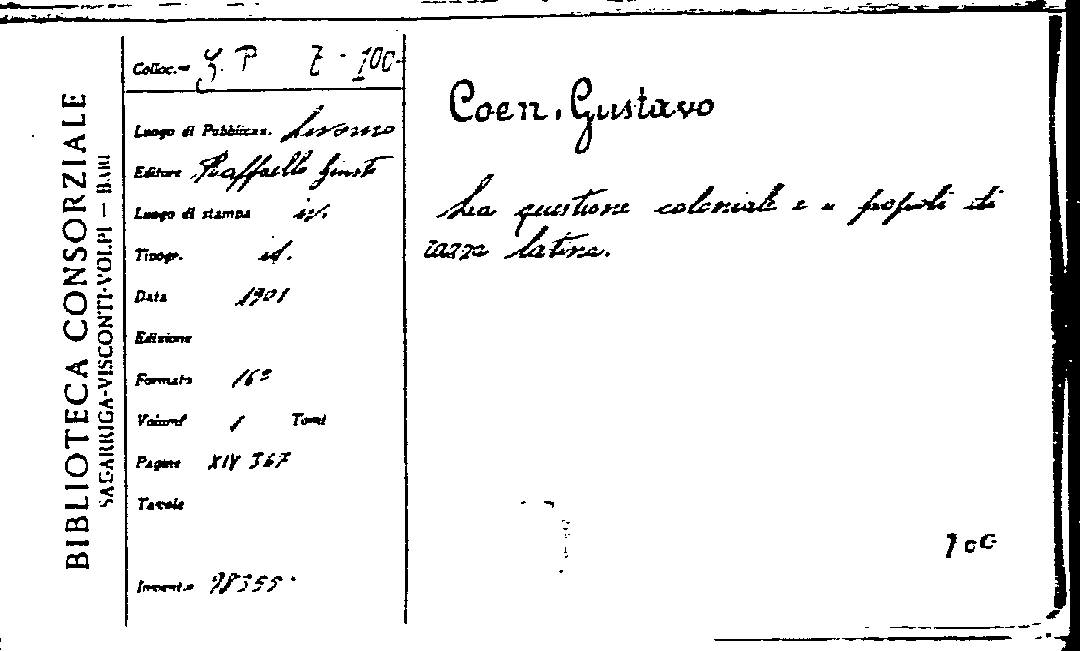 BIBLIOTECA CONSORZIALE
SAGARRIGA-VISCONTI-VOLPI — BARI
Colloc.
Luogo di Pubblicaz. Livorno
Editore Raffaello Giusti
Luogo di stampa id.
Tipogr. id.
Data 1901
Edizione
Formato 16°
Volumi 1 Tomi
Pagine XIV 367
Tavole
Invent.° 98355
Coen, Gustavo
La questione coloniale e i popoli di
razza latina.